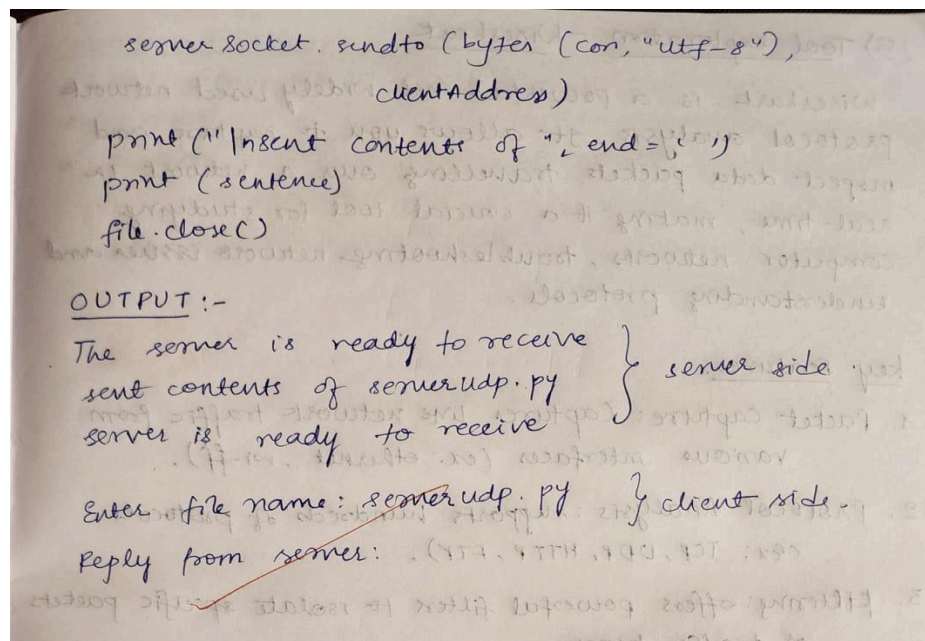 server Socket. sendto (bytes (con, "utf-8"),
clientAddress)
print ("\nsent contents of ", end = ' ')
print (sentence)
file.close()
OUTPUT :-
The server is ready to receive
sent contents of serverudp.py
server is ready to receive
} server side.
Enter file name: serverudp.py } client side.
Reply from server: